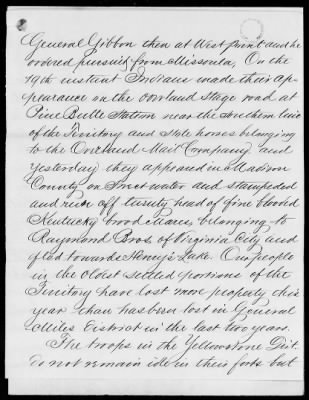 General Gibbon then at West Point and he
ordered pursuit from Missoula, On the
19th instant Indians made their ap-
pearance on the overland stage road at
Pine Butte Station near the Southern line
of the Territory and stole horses belonging
to the Overland Mail Company and
yesterday they appeared in Madison
County on Sweetwater and stampeded
and run off twenty head of fine blooded
Kentucky brood Mares, belonging to
Raymond Bros. of Virginia City and
fled towards Henry's Lake. Our people
in the oldest settled portions of the
Territory have lost more property this
year than has been lost in General
Miles District in the last two years.
The troops in the Yellowstone Dist.
do not remain idle in their forts but